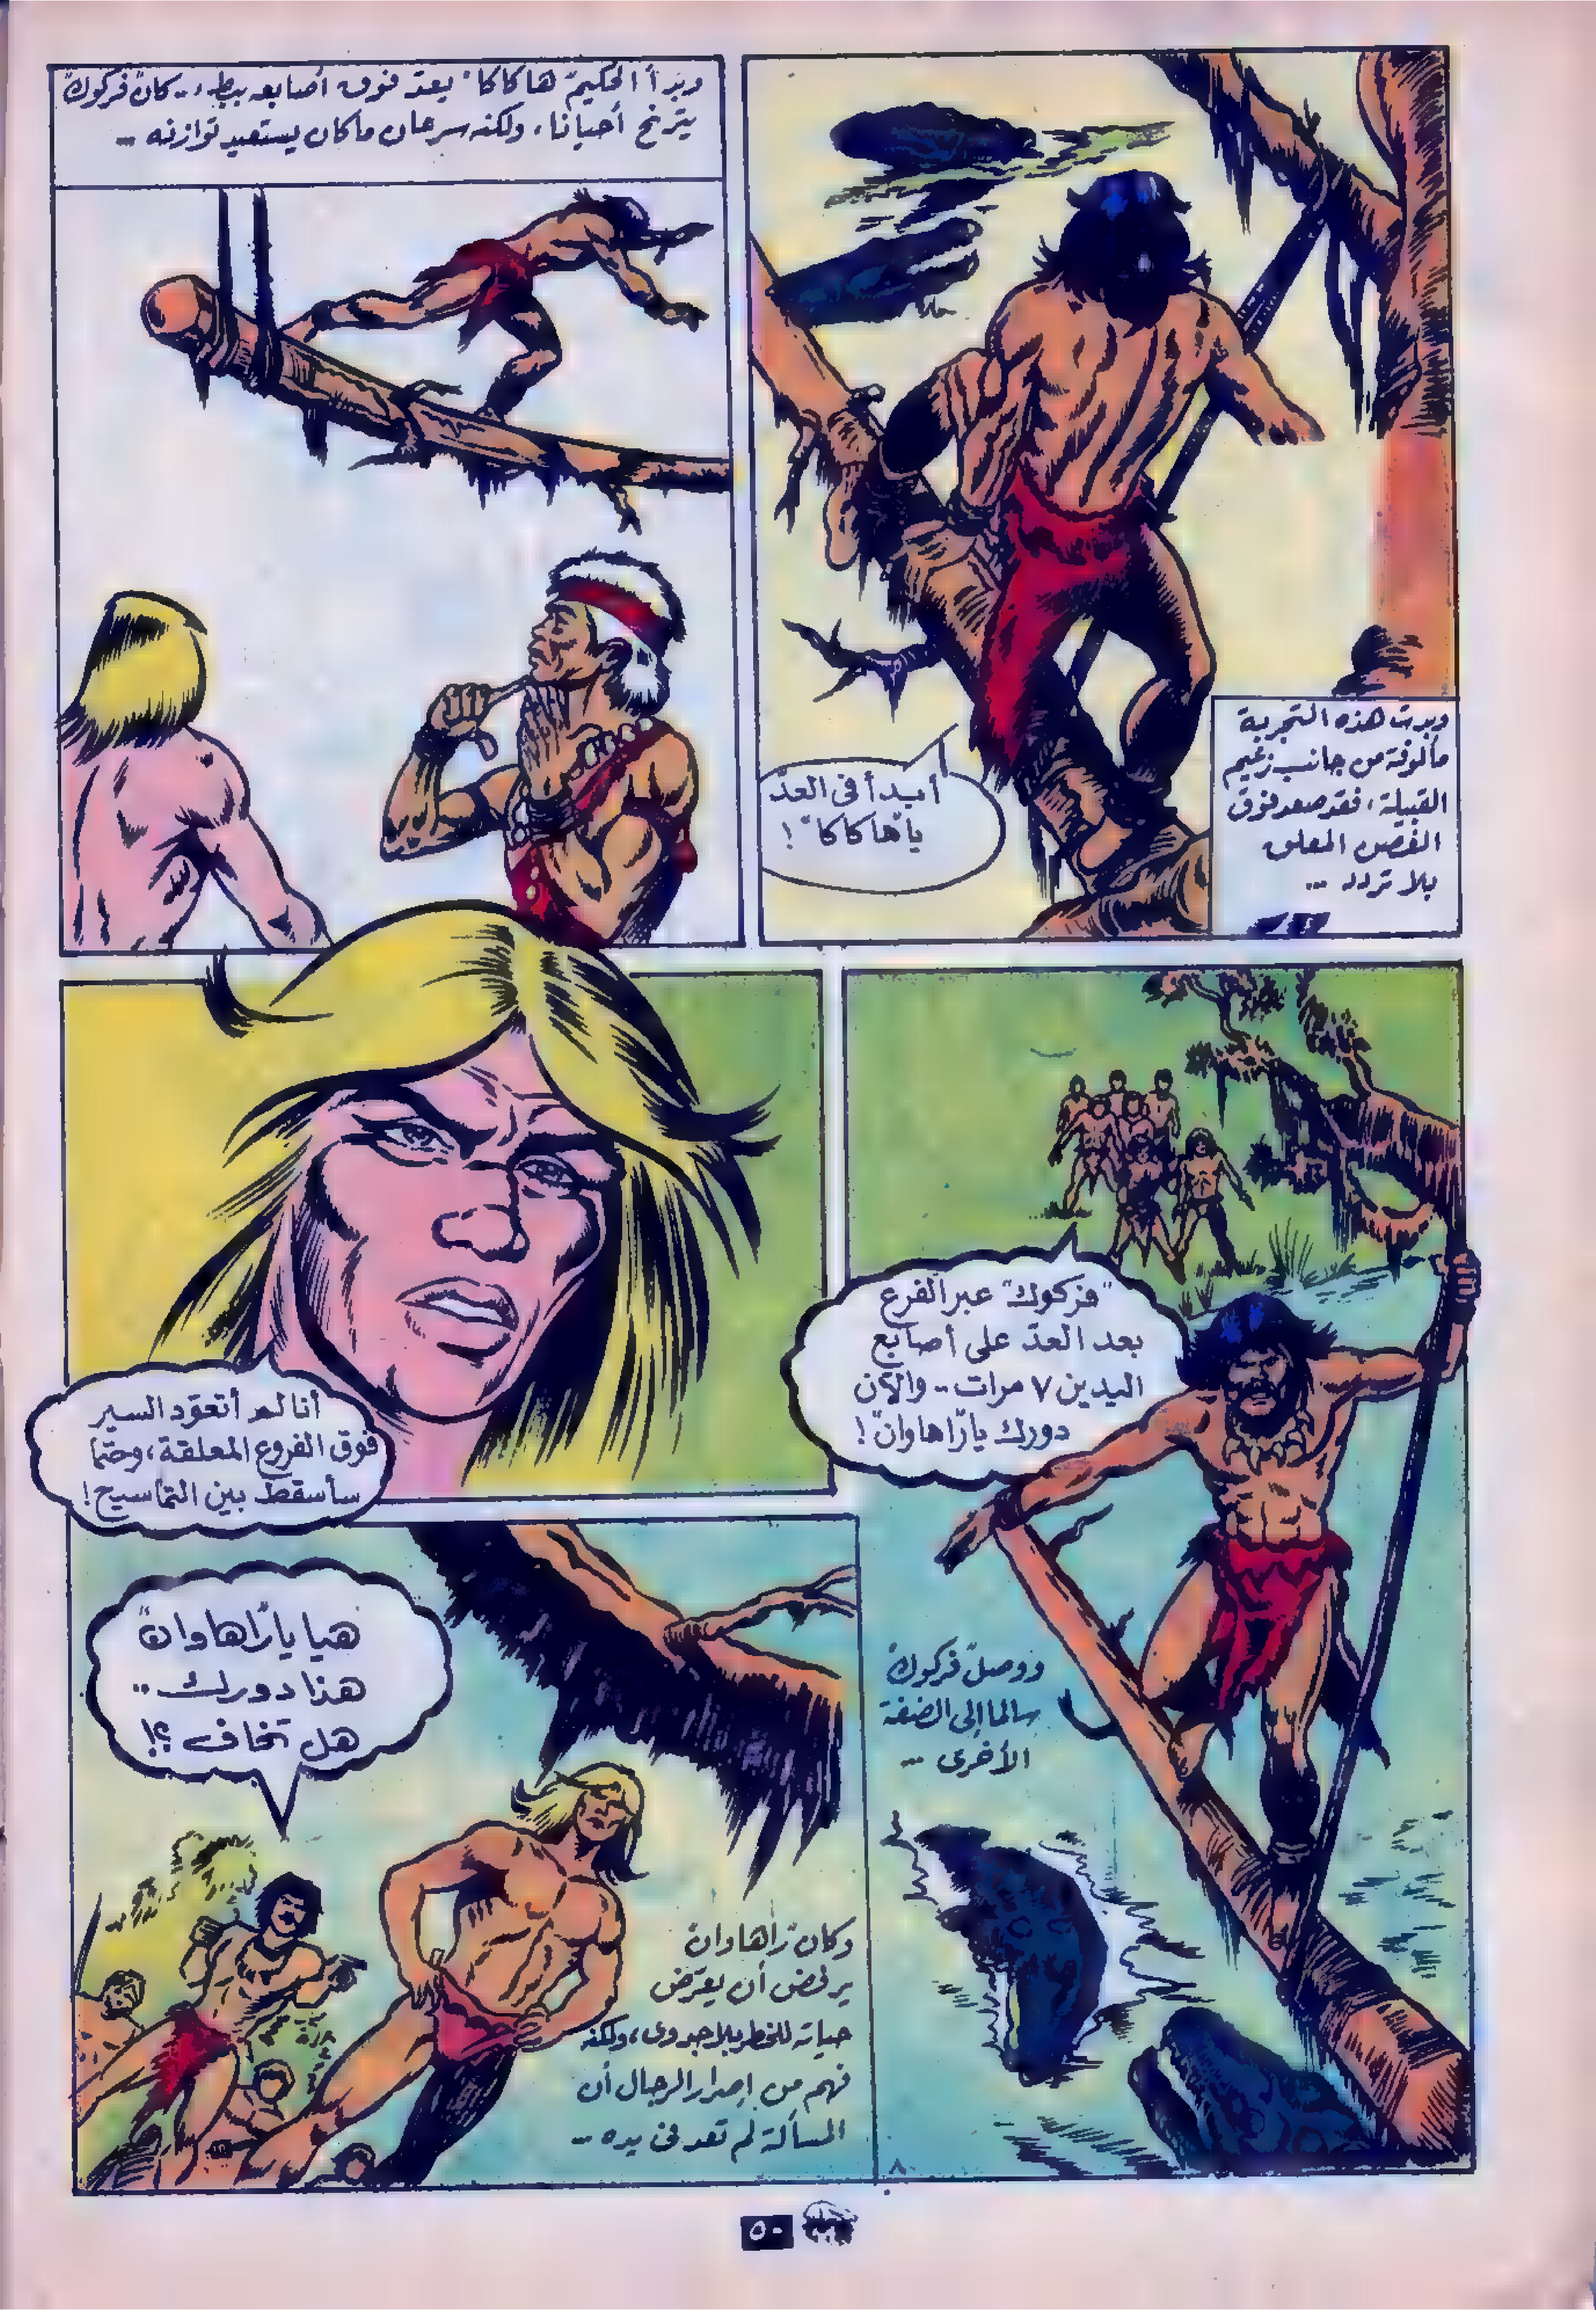 وبدت هذه التجربة
مألوفة من جانب زعيم
القبيلة، فقد صعد فوق
الغصن المعلق
بلا تردد ..
أبدأ في العدّ
يا "هاكاكا"!
وبدأ الحكيم "هاكاكا" يعدّ فوق أصابعه ببطء.. كان "فركوك"
يترنح أحيانا، ولكنه سرعان ما كان يستعيد توازنه ..
"فركوك" عبر الفرع
بعد العدّ على أصابع
اليدين ٧ مرات.. والآن
دورك يا "راهاوان"!
ووصل "فركوك"
سالما إلى الضفة
الأخرى ..
أنا لم أتعوّد السير
فوق الفروع المعلقة، وحتما
سأسقط بين التماسيح!
هيا يا "راهاوان"
هذا دورك ..
هل تخاف ؟!
وكان "راهاوان"
يرفض أن يعرّض
حياته للخطر بلا جدوى، ولكنه
فهم من إصرار الرجال أن
المسألة لم تعد في يده ..
٥٠